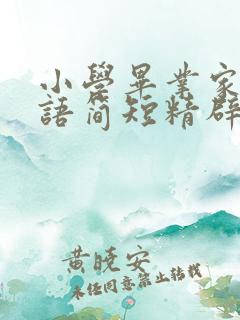 小學畢業家
語簡短精辟
黄曉安
未经同意禁止转载